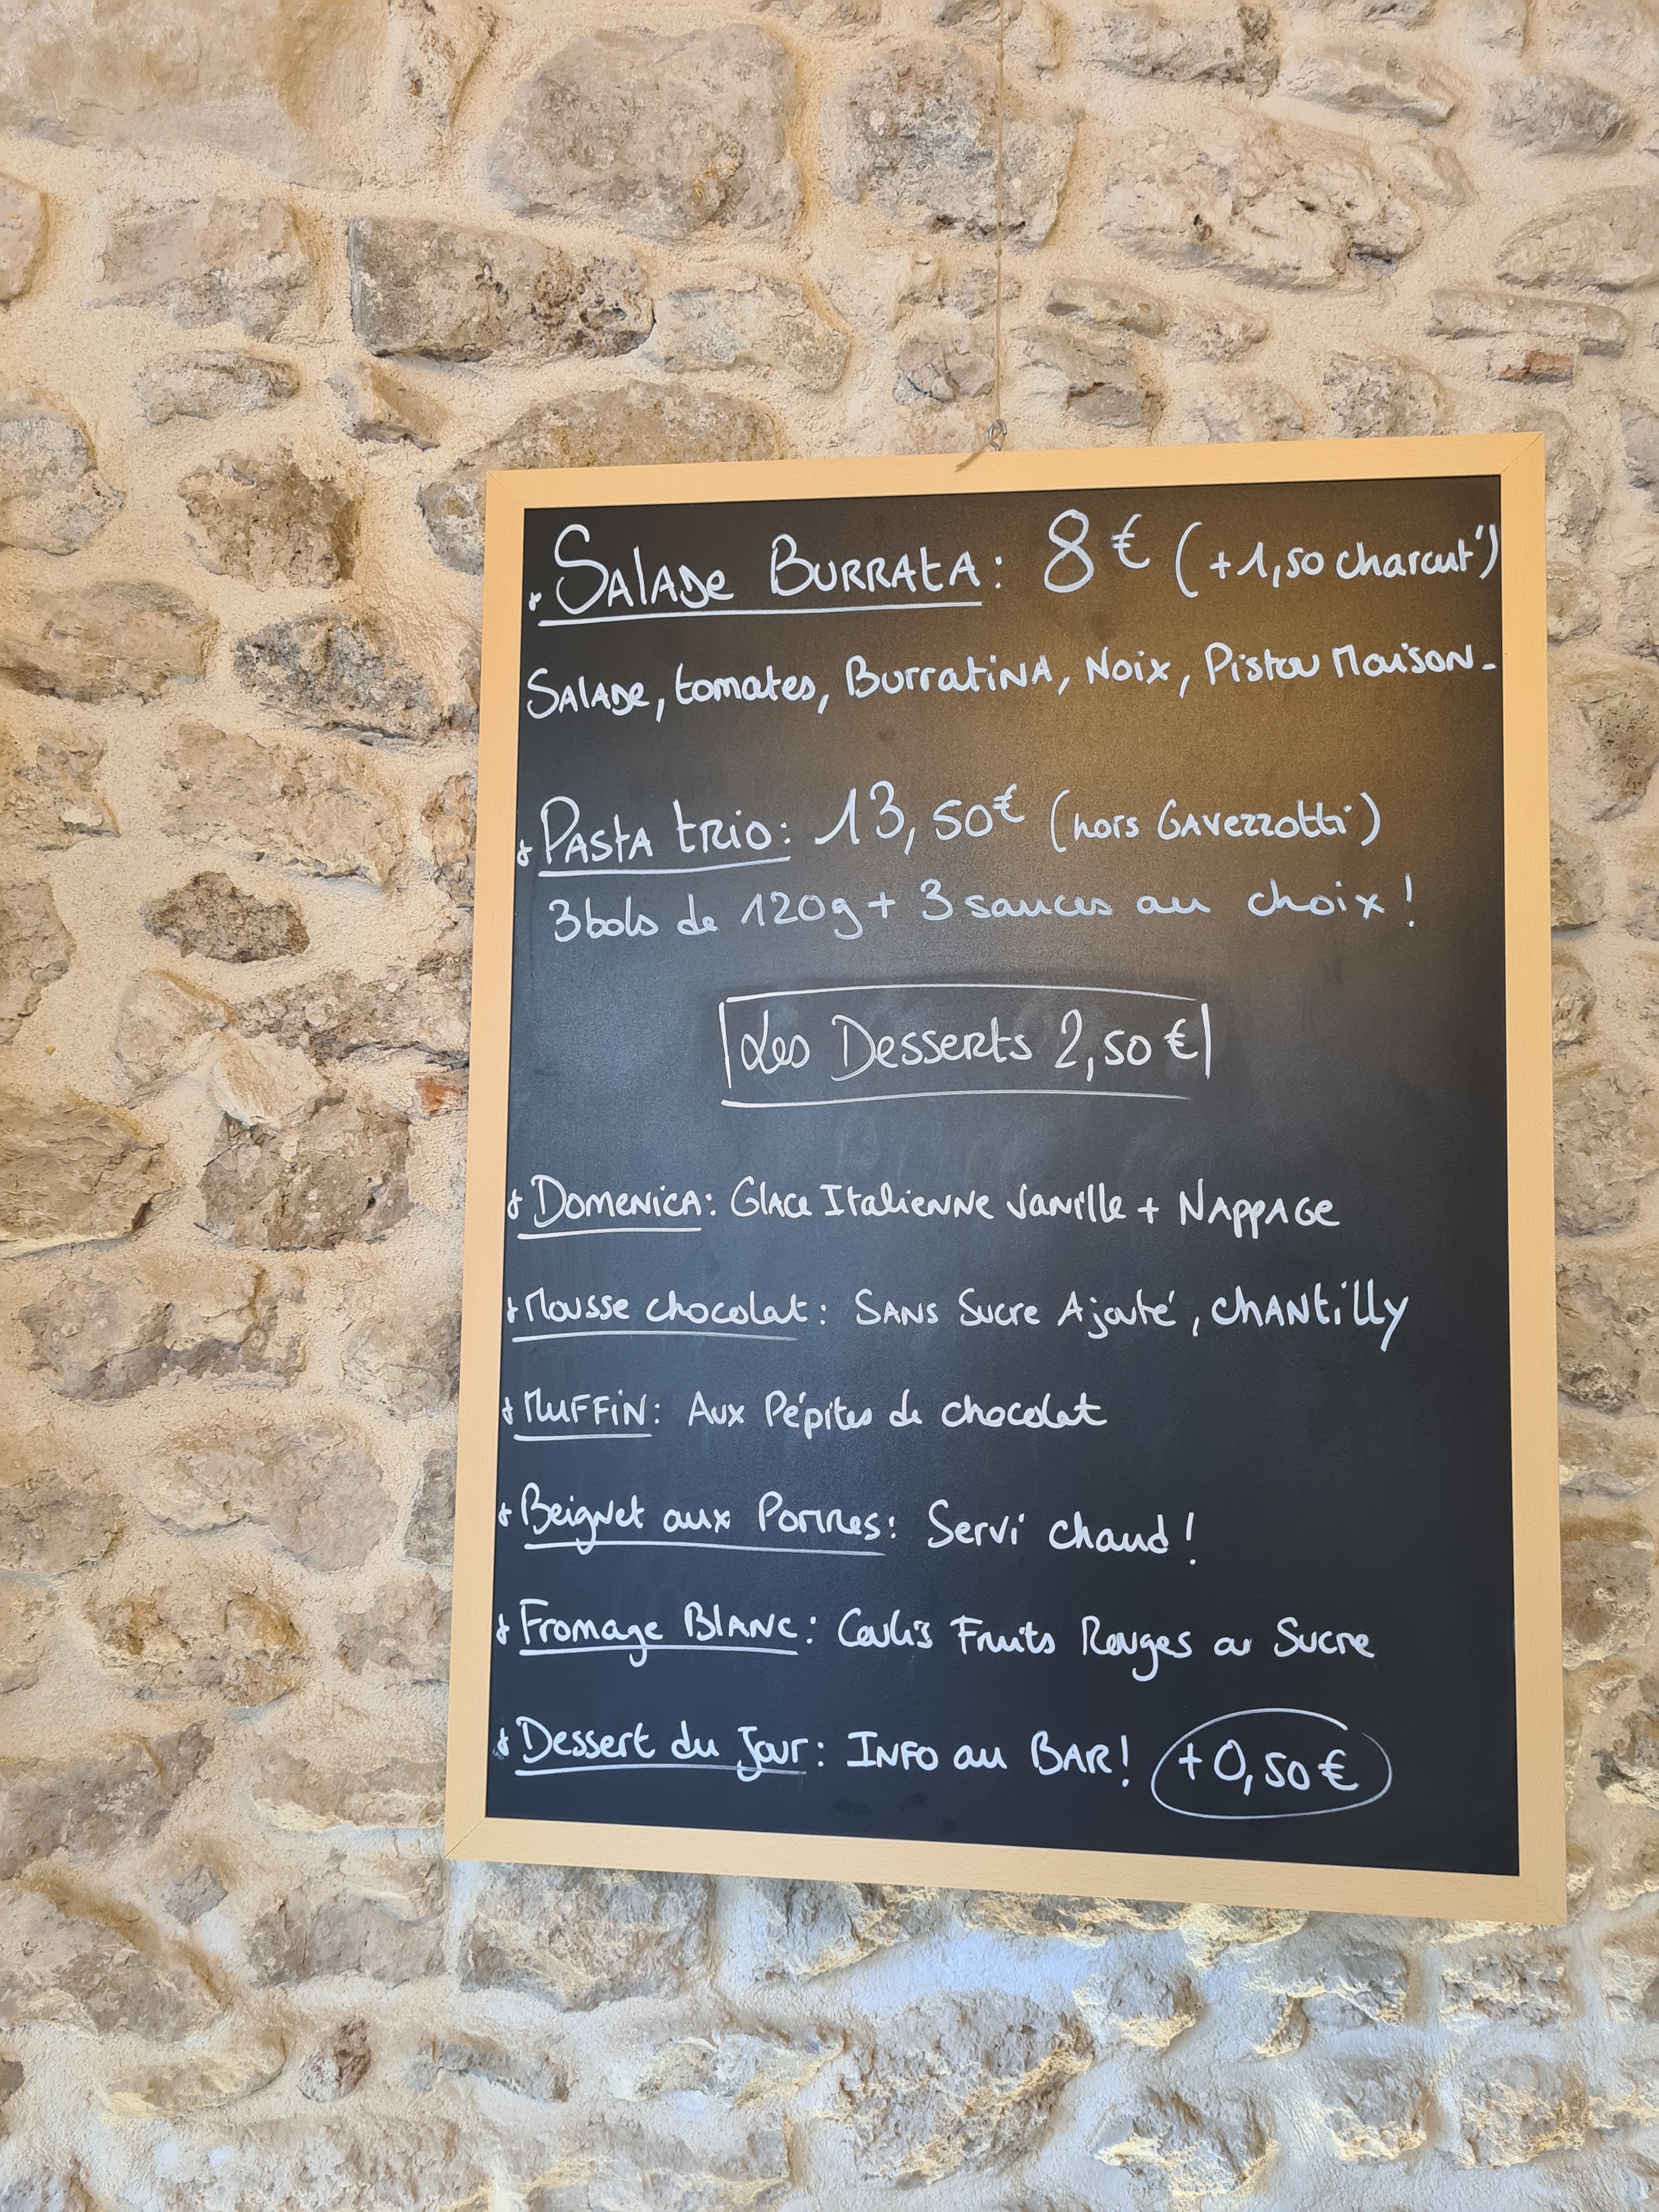 * Salade Burrata : 8€ (+1,50 charcut')
Salade, tomates, Burratina, Noix, Pistou Maison.
* Pasta trio : 13,50€ (hors Gavezzotti)
3 bols de 120g + 3 sauces au choix !
Les Desserts 2,50€
* Domenica : Glace Italienne Vanille + Nappage
* Mousse chocolat : Sans Sucre Ajouté, chantilly
* Muffin : Aux Pépites de chocolat
* Beignet aux Pommes : Servi chaud !
* Fromage Blanc : Coulis Fruits Rouges ou Sucre
* Dessert du Jour : Info au Bar ! +0,50€